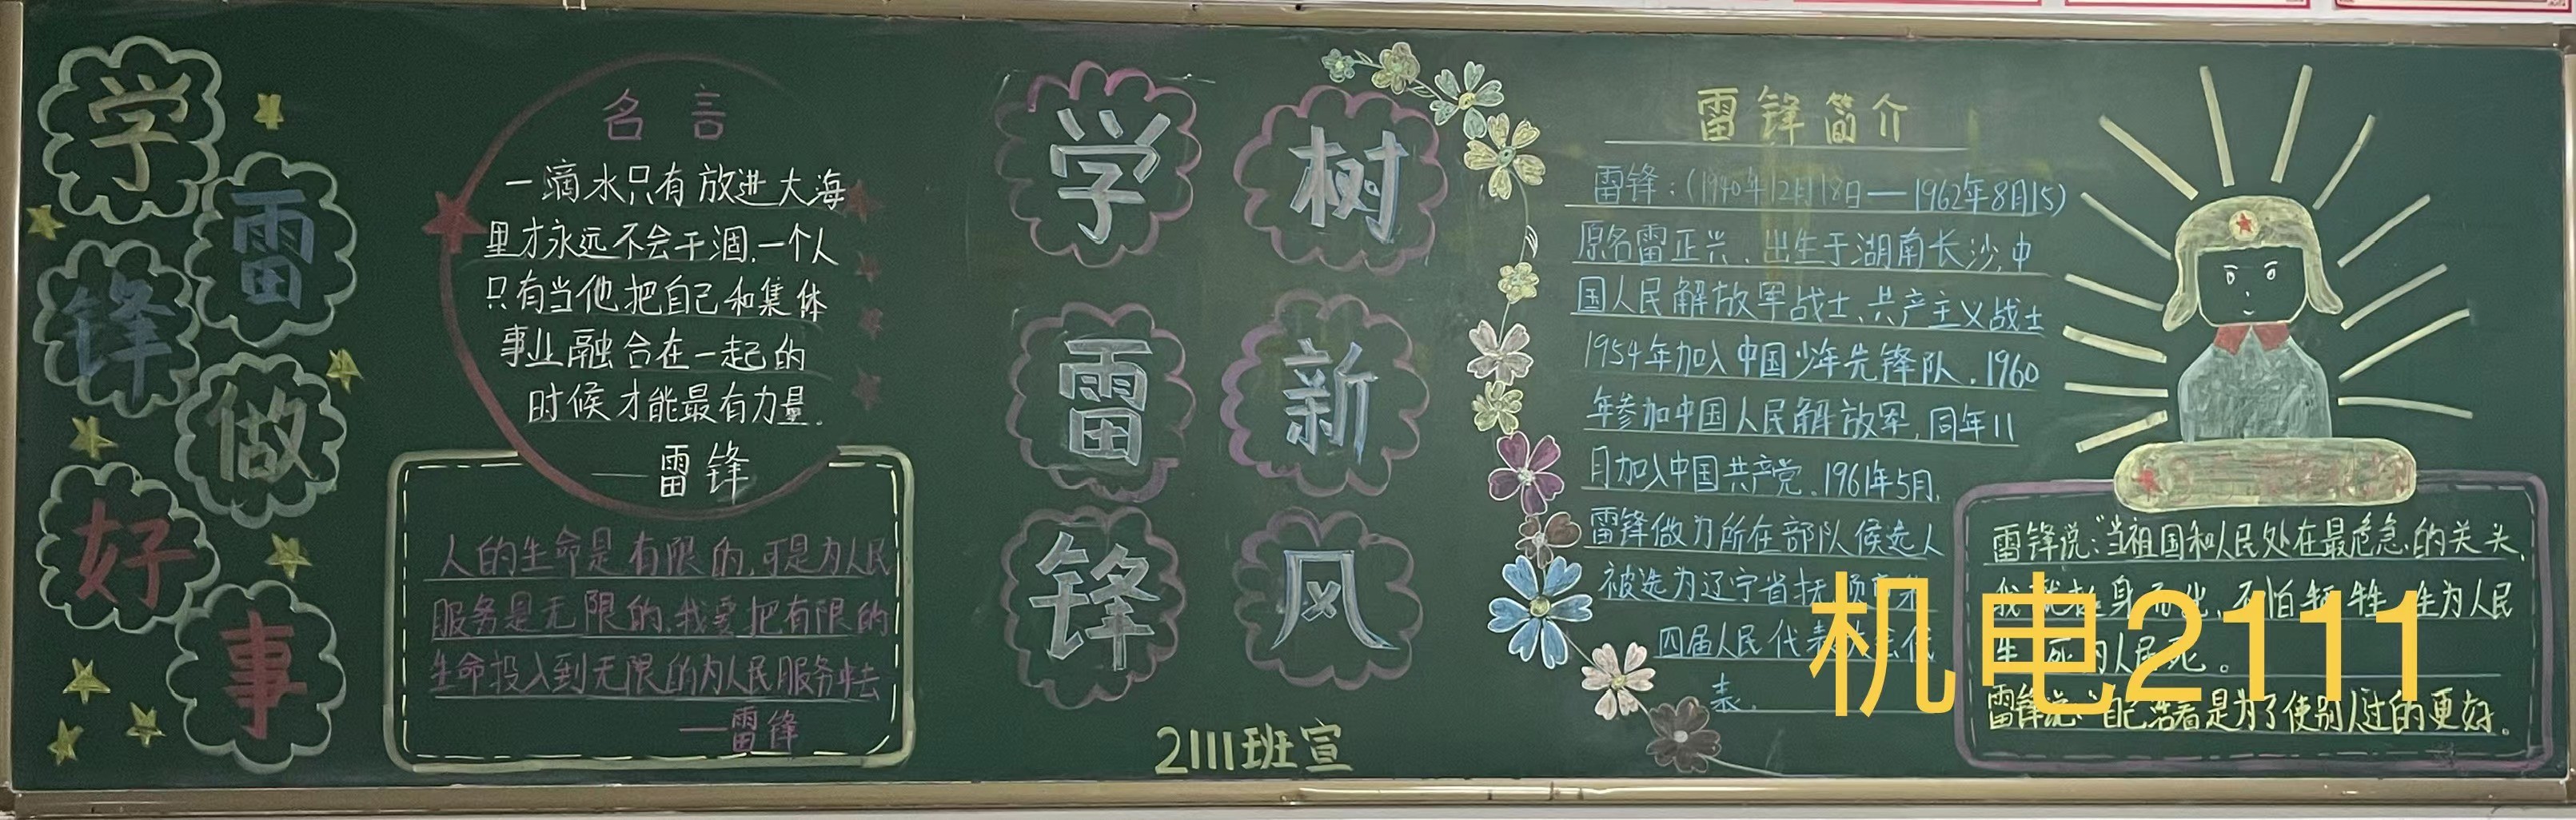 学
雷
锋
做
好
事
名言
一滴水只有放进大海
里才永远不会干涸.一个人
只有当他把自己和集体
事业融合在一起的
时候才能最有力量.
——雷锋
人的生命是有限的,可是为人民
服务是无限的,我要把有限的
生命投入到无限的为人民服务中去
——雷锋
学
雷
锋
树
新
风
2111班宣
雷锋简介
雷锋:(1940年12月18日——1962年8月15)
原名雷正兴、出生于湖南长沙,中
国人民解放军战士、共产主义战士
1954年加入中国少年先锋队.1960
年参加中国人民解放军,同年11
月加入中国共产党.1961年5月,
雷锋做为所在部队候选人
被选为辽宁省抚顺
四届人民代表
表.
雷锋说:"当祖国和人民处在最危急的关头,
我 身而出,不怕牺牲,生为人民
生 死为人民死。
雷锋说:"自己活着是为了使别人过的更好。
机电2111